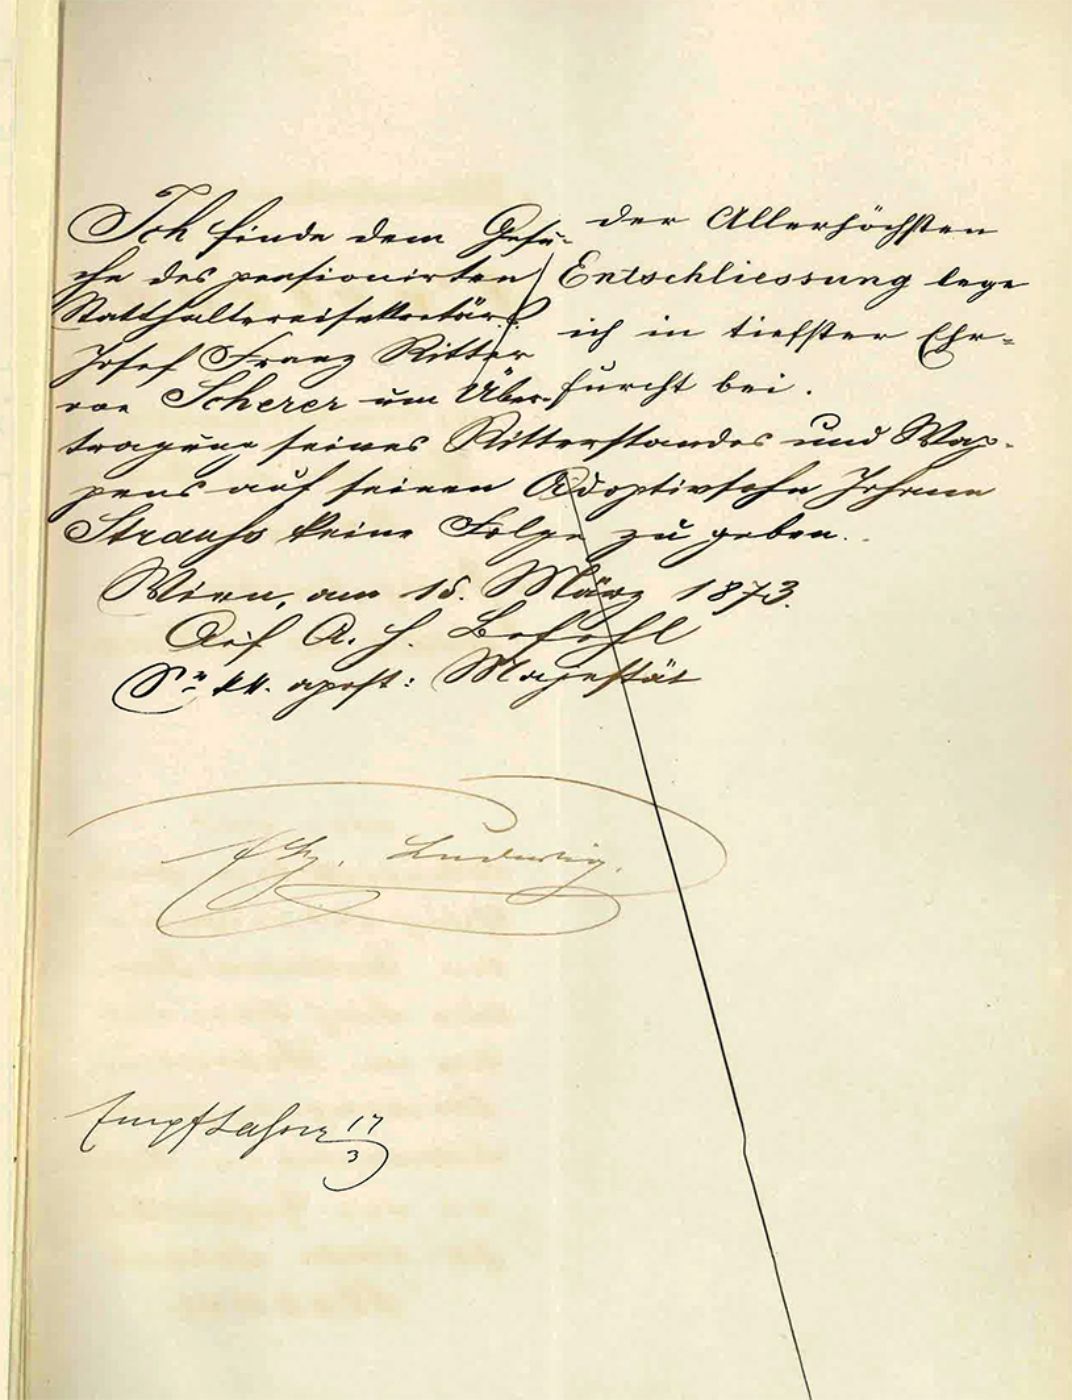 der Allerhöchsten
Entschliessung lege
ich in tiefster Ehr-
furcht bei.
Ich finde dem Gesu-
che des pensionirten
Statthaltereisekretärs
Josef Franz Ritter
von Scherer um Über-
tragung seines Ritterstandes und Wap-
pens auf seinen Adoptivsohn Johann
Strauss keine Folge zu geben.
Wien, am 15. März 1873.
Auf A. H. Befehl
Sr. kk. apost: Majestät
Ehz. Ludwig.
17
3